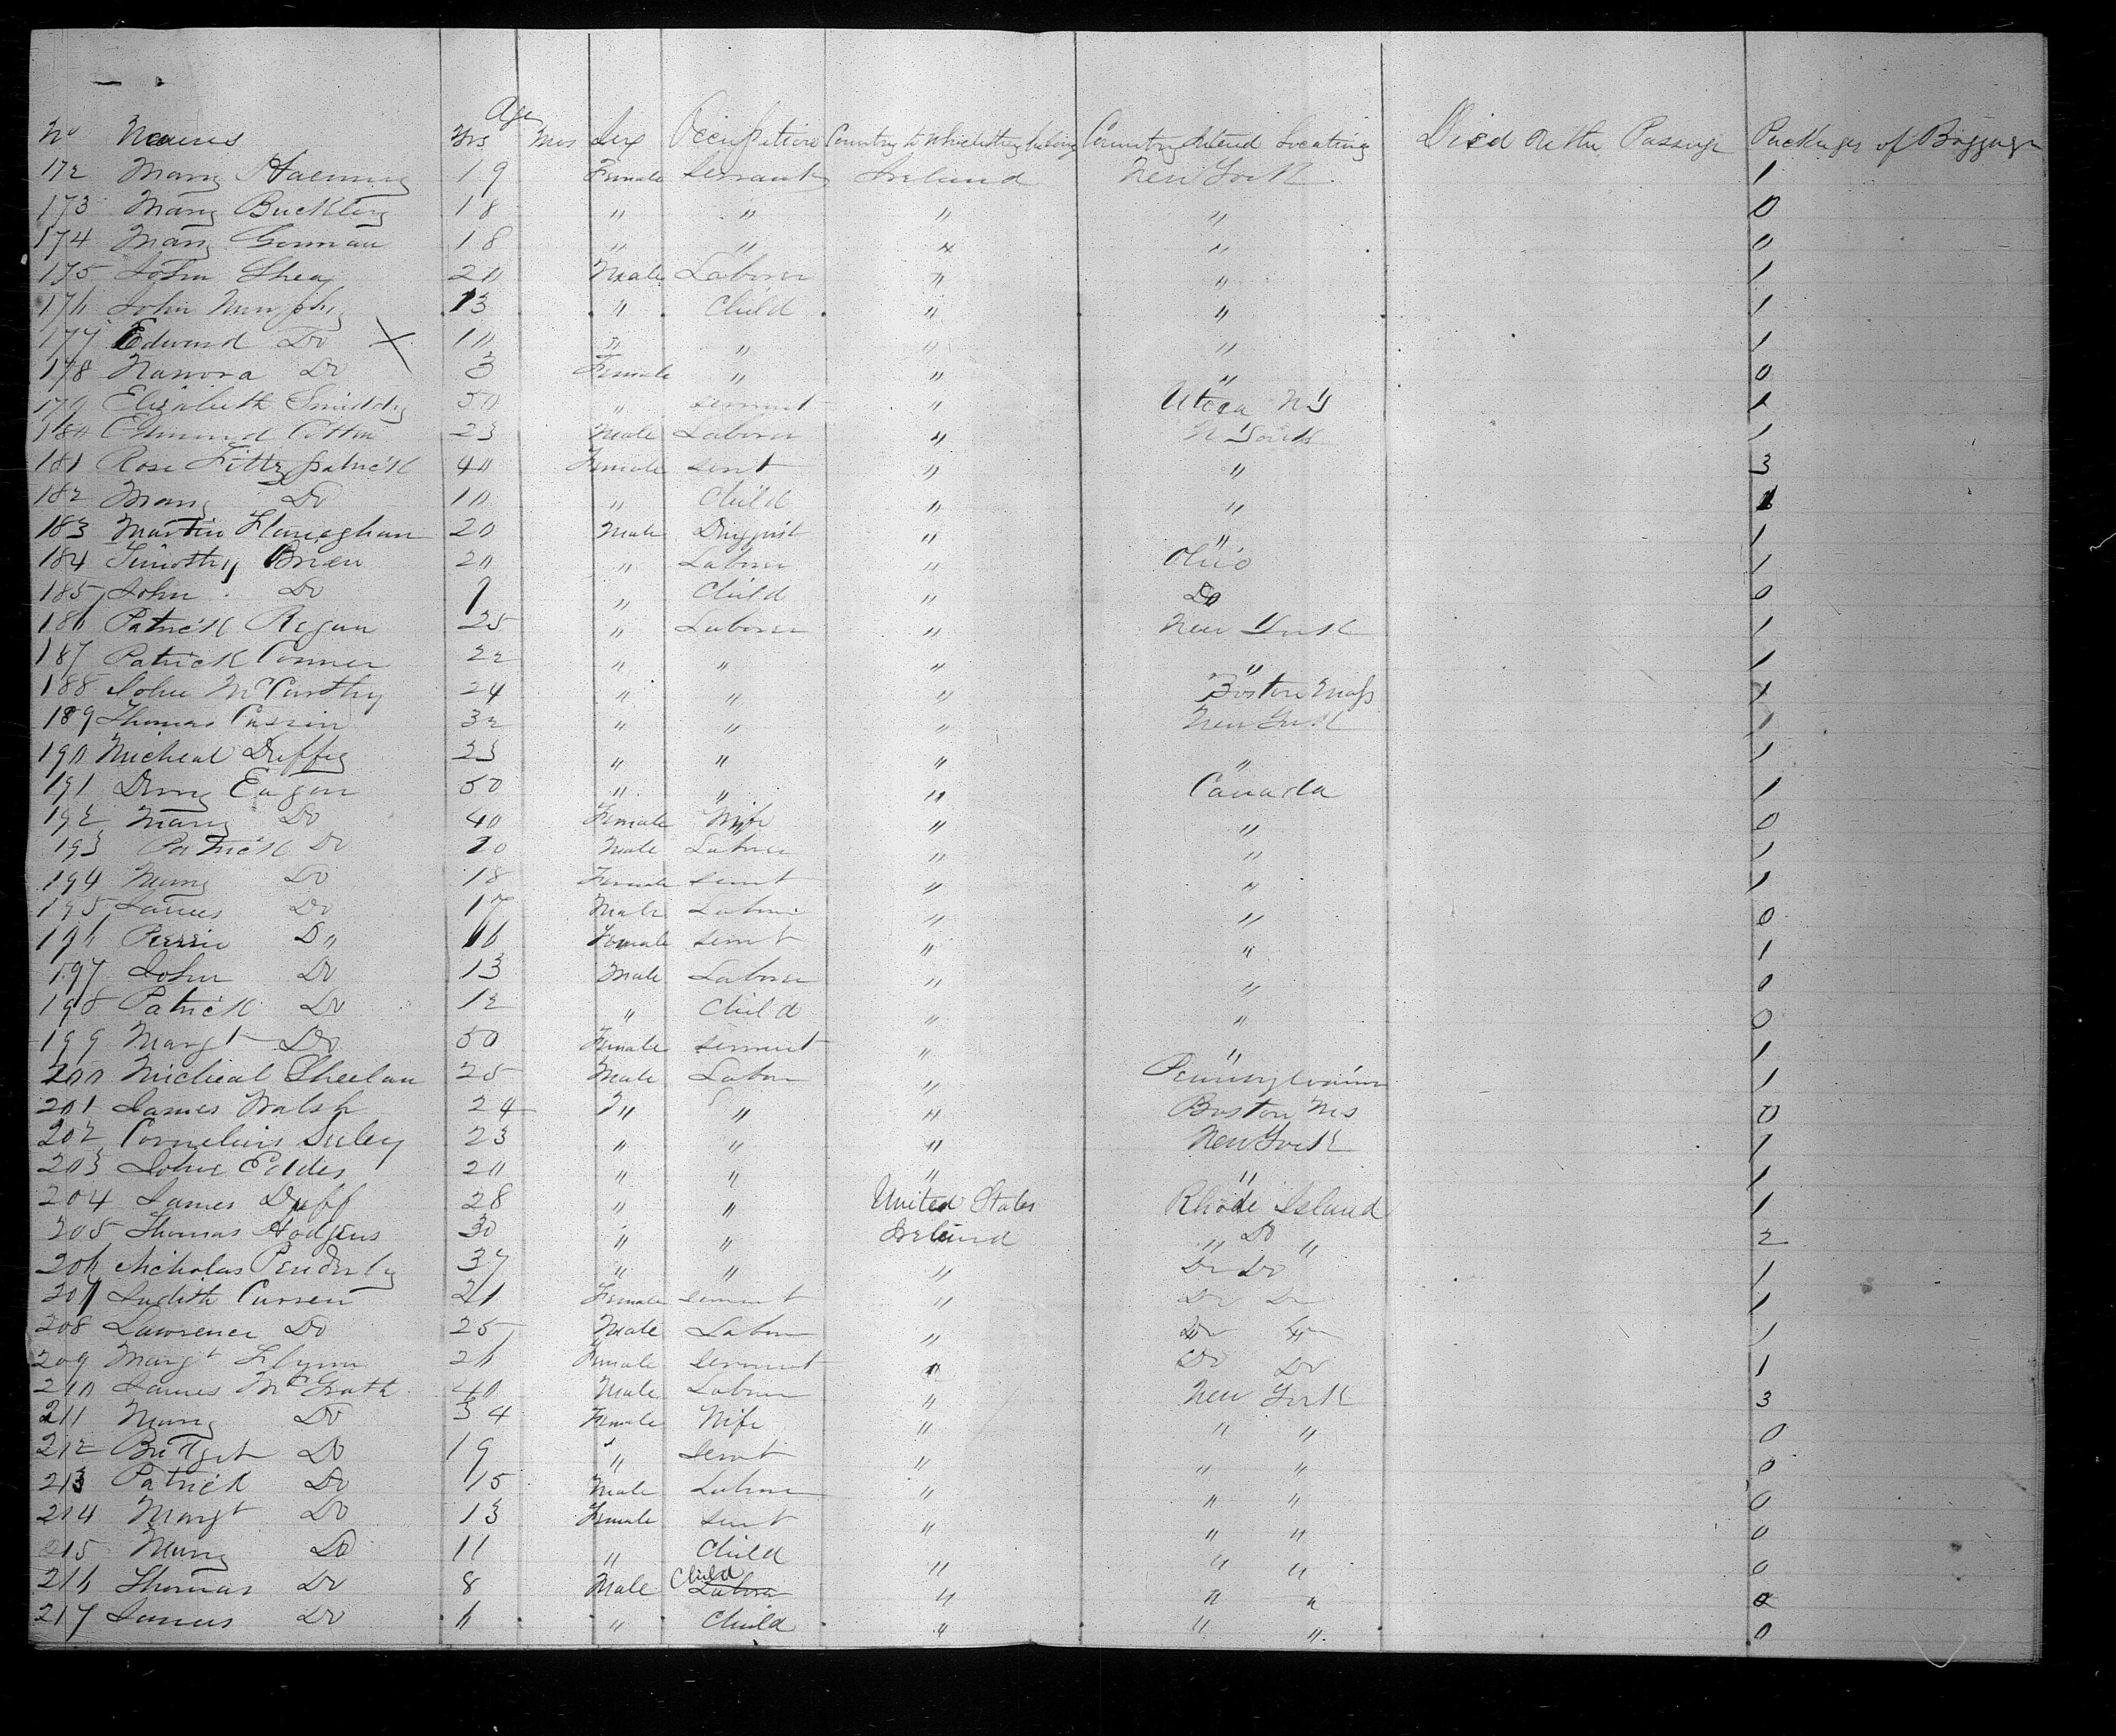 Age
No Names Yrs Mos Sex Occupation Country to which they belong Country Intend Locating Died on the Passage Packages of Baggage
172 Mary 19 Female Servant Ireland New York 1
173 Mary Buckley 18 " " " " 0
174 Mary Gorman 18 " " " " 0
175 John Shea 20 Male Laborer " " 1
176 John Murphy 13 " Child " " 1
177 Edward Do X 10 " " " " 1
178 Hanora Do 3 Female " " " 0
179 Elizabeth Smiddy 50 " servant " Utica NY 1
180 Edmond 23 Male Laborer " N York 1
181 Rose Fittzpatrick 40 Female servt " " 3
182 Mary Do 10 " Child " " 1
183 Martin Flaneghan 20 Male Druggist " " 1
184 Timothy Brien 20 " Laborer " Ohio 1
185 John Do 9 " Child " Do 0
186 Patrick Regan 25 " Laborer " New York 1
187 Patrick Conner 22 " " " " 1
188 John McCarthy 24 " " " Boston Mass 1
189 Thomas Cassin 32 " " " New York 1
190 Micheal Duffey 23 " " " " 1
191 Deny Eagan 50 " " " Canada 1
192 Mary Do 40 Female Wife " " 0
193 Patrick Do 20 Male Laborer " " 1
194 Mary Do 18 Female servt " " 1
195 James Do 17 Male Labour " " 0
196 Do 16 Female servt " " 1
197 John Do 13 Male Laborer " " 0
198 Patrick Do 12 " Child " " 0
199 Margt Do 50 Female servant " " 1
200 Micheal Sheelan 25 Male Labor " Pennsylvania 1
201 James Walsh 24 " " " Boston Ms 0
202 Cornelius 23 " " " New York 1
203 John 20 " " " " 1
204 James Duff 28 " " United States Rhode Island 1
205 Thomas Hodgens 30 " " Ireland " Do " 2
206 Nicholas Penderby 37 " " " Do Do 1
207 Judith Curren 21 Female servant " Do Do 1
208 Lawrence Do 25 Male Labour " Do Do 1
209 Margt Flynn 26 Female servant " Do Do 1
210 James McGrath 40 Male Labour " New York 3
211 Mary Do 34 Female Wife " " " 0
212 Bridget Do 19 " servt " " " 0
213 Patrick Do 15 Male Labour " " " 0
214 Margt Do 13 Female servt " " " 0
215 Mary Do 11 " Child " " " 0
216 Thomas Do 8 Male Child Labour " " " 0
217 James Do 6 " Child " " " 0